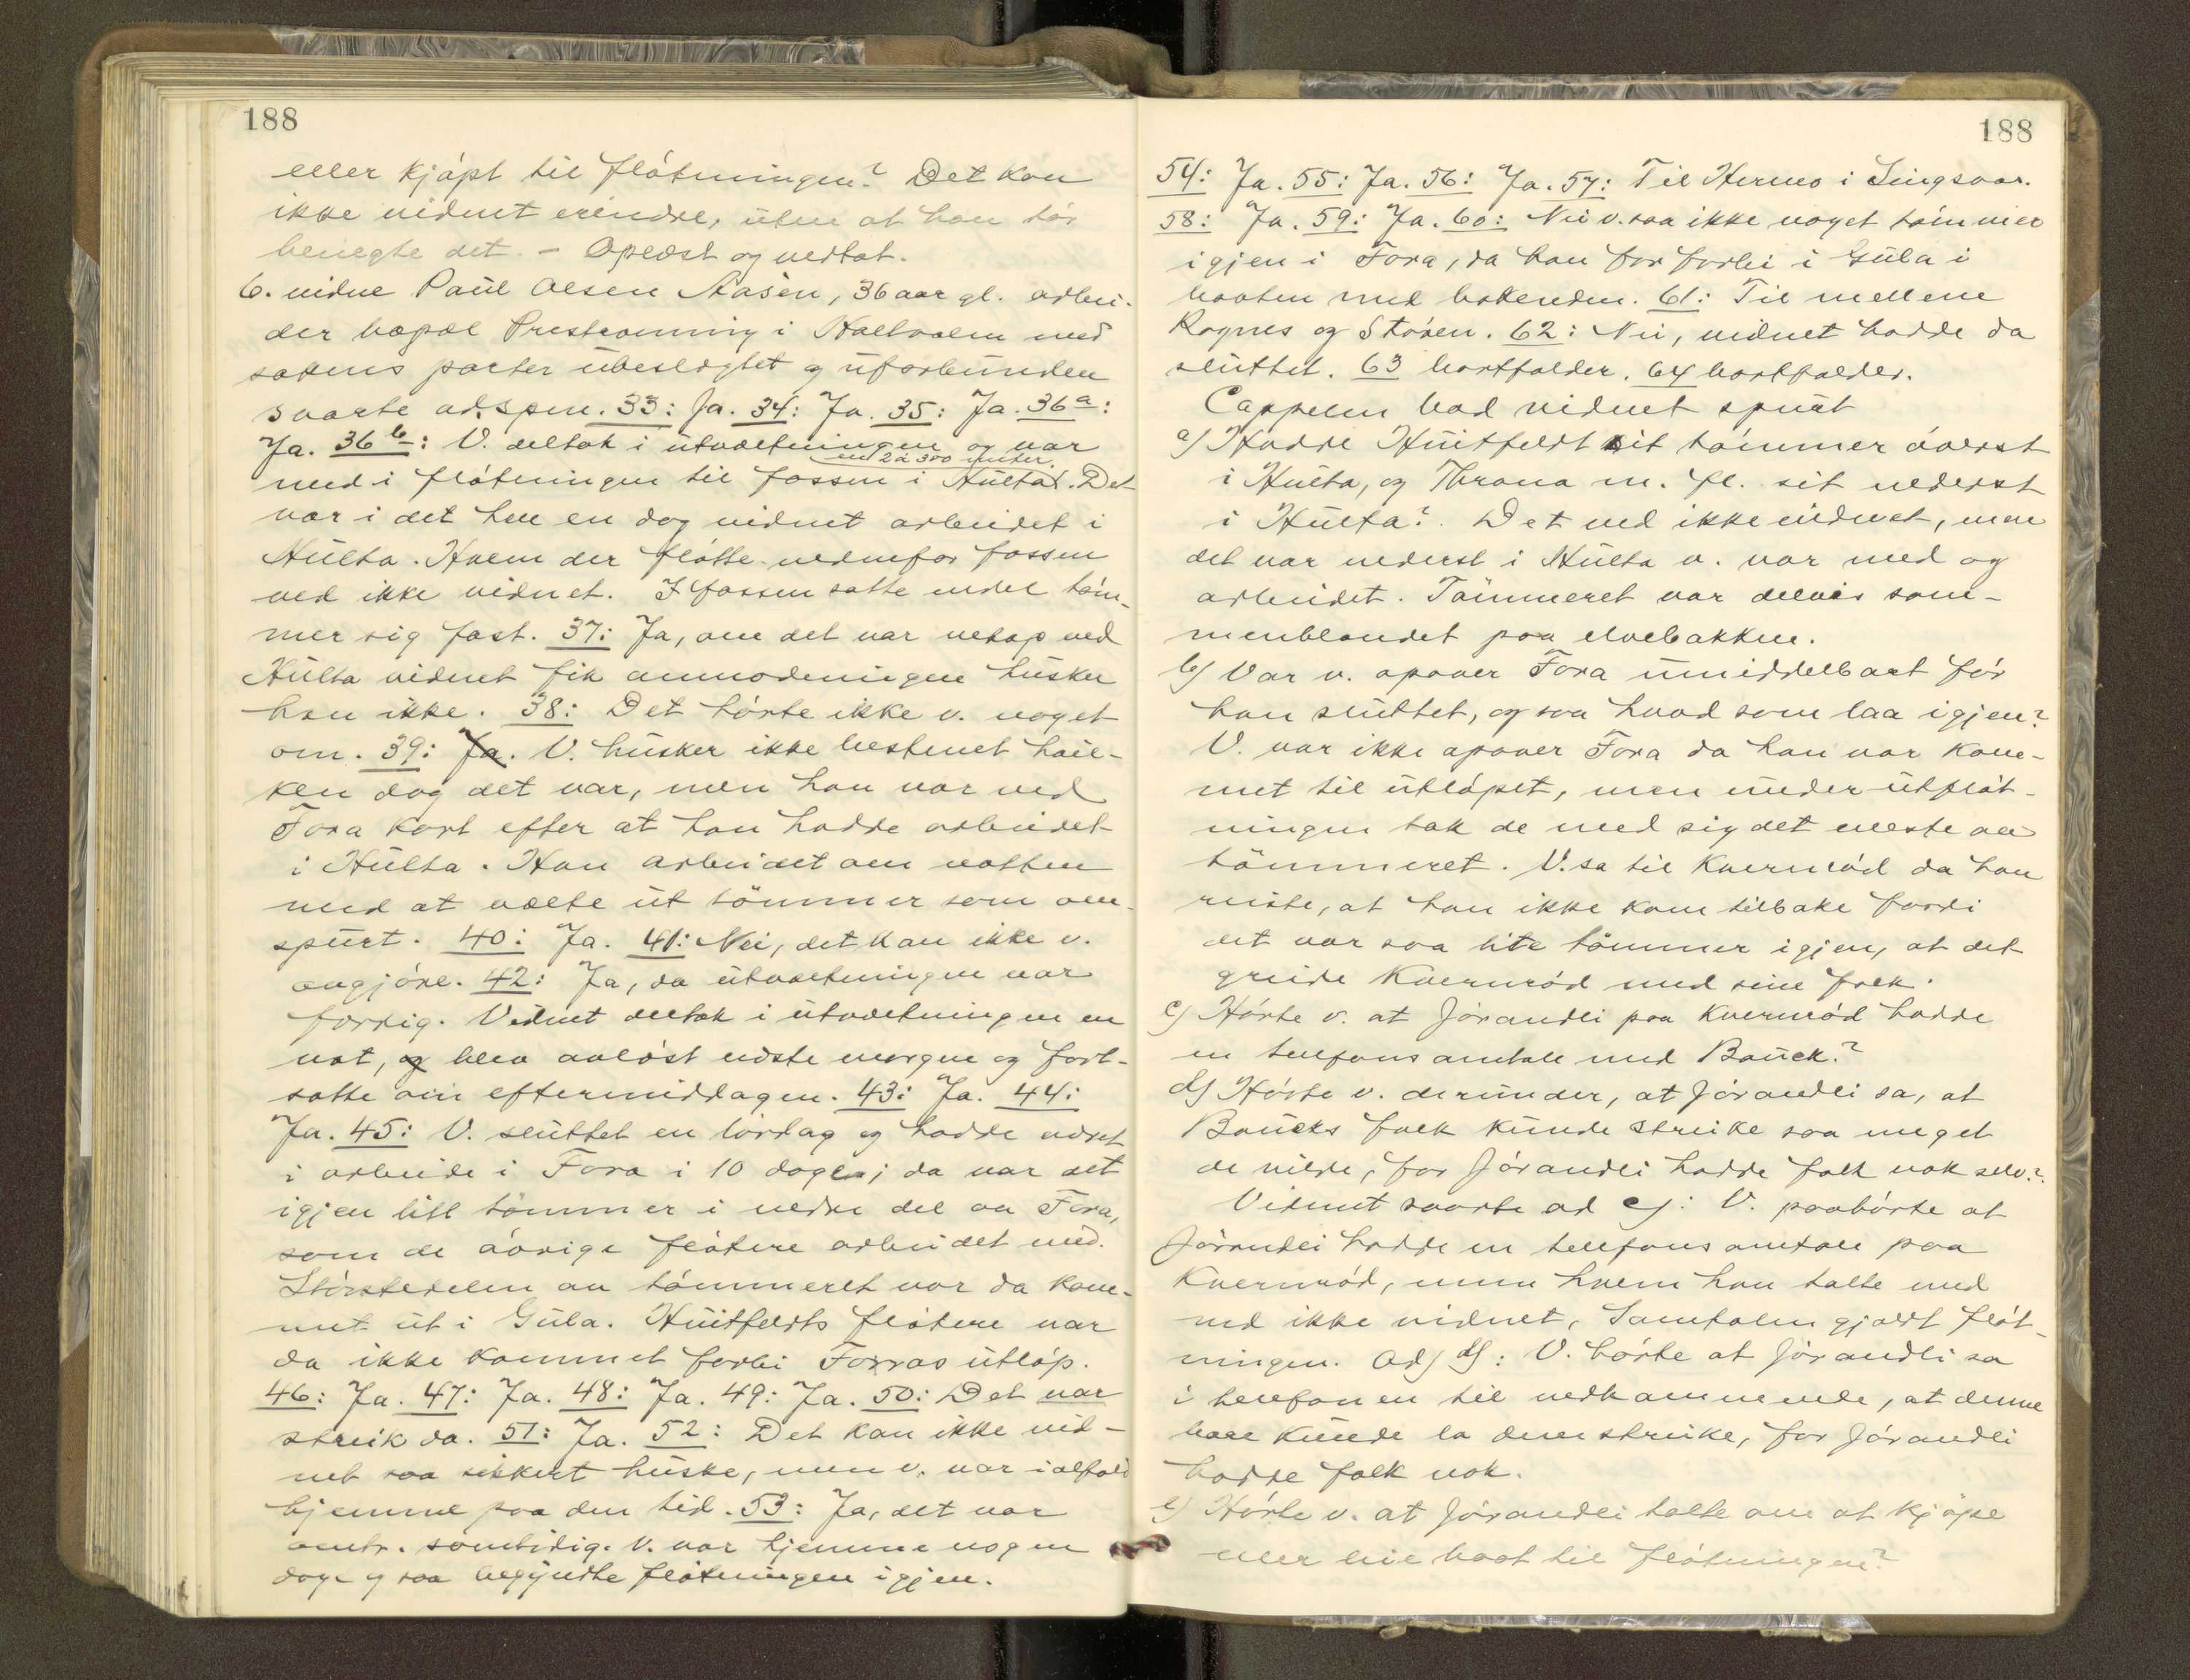 188
eller kjøpt til fløtningen? Det kan
ikke vidnet erindre, uten at han tør
benegte det. - Oplæst og vedtat.
6. vidne Paul Olsen Aasen, 36 aar gl. arbei-
der bopæl Prestrønning i Haltdalen med
sakens parter ubeslægtet og uforbunden
svarte ad spm. 33: Ja. 34: Ja. 35: Ja. 36a:
Ja. 36b: V. deltok i utvæltningen og var
en 2 à 300 meter.
med i fløtningen til fossen i Hulta. Det
var i det hele en dag vidnet arbeidet i
Hulta. Hvem der fløtte nedenfor fossen
ved ikke vidnet. I fossen satte endel tøm-
mer sig fast. 37: Ja, om det var netop ved
Hulta vidnet fik anmodningen husker
han ikke. 38: Det hørte ikke v. noget
om. 39: Ja. V. husker ikke bestemt hvil-
ken dag det var, men han var ved
Fora kort efter at han hadde arbeidet
i Hulta. Han arbeidet om natten
med at vælte ut tømmer som om-
spurt. 40: Ja. 41: Nei, det kan ikke v.
avgjøre. 42: Ja, da utvæltningen var
færdig. Vidnet deltok i utvæltningen en
nat, og blev avløst næste morgen og fort-
satte om eftermiddagen. 43: Ja. 44:
Ja. 45: V. sluttet en lørdag og hadde været
i arbeide i Fora i 10 dage; da var det
igjen litt tømmer i nedre del av Fora,
som de øvrige fløtere arbeidet med.
Størstedelen av tømmeret var da kom-
met ut i Gula. Huitfeldts fløtere var
da ikke kommet forbi Forras utløp.
46: Ja. 47: Ja. 48: Ja. 49: Ja. 50: Det var
streik da. 51: Ja. 52: Det kan ikke vid-
net saa sikkert huske, men v. var ialfald
hjemme paa den tid. 53: Ja, det var
omtr. samtidig. V. var hjemme nogen
dage og saa begyndte fløtningen igjen.
188
54: Ja. 55: Ja. 56: Ja. 57: Til Hermo i Singsaas.
58: Ja. 59: Ja. 60: Nei v. saa ikke noget tømmer
igjen i Fora, da han for forbi i Gula i
baaten med bakenden. 61: Til mellem
Rognes og Støren. 62: Nei, vidnet hadde da
sluttet. 63 bortfalder. 64 bortfalder.
Cappelen bad vidnet spurt
a) Hadde Huitfeldt sit tømmer øverst
i Hulta, og Throna m. fl. sit nederst
i Hulta? Det ved ikke vidnet, men
det var nederst i Hulta v. var med og
arbeidet. Tømmeret var delvis sam-
menblandet paa elvebakken.
b) Var v. opover Fora umiddelbart før
han sluttet, og saa hvad som laa igjen?
V. var ikke opover Fora da han var kom-
met til utløpet, men under utfløt-
ningen tok de med sig det meste av
tømmeret. V. sa til Kvernrød da han
reiste, at han ikke kom tilbake fordi
det var saa lite tømmer igjen, at det
greide Kvernrød med sine folk.
c) Hørte v. at Jørandli paa Kvernrød hadde
en telefonsamtale med Bauck?
d) Hørte v. derunder, at Jørandli sa, at
Baucks folk kunde streike saa meget
de vilde, for Jørandli hadde folk nok selv?
Vidnet svarte ad c): V. paahørte at
Jørandli hadde en telefonsamtale paa
Kvernrød, men hvem han talte med
ved ikke vidnet. Samtalen gjaldt fløt-
ningen. Ad) d): V. hørte at Jørandli sa
i telefonen til vedkommende, at denne
bare kunde la dem streike, for Jørandli
hadde folk nok.
e) Hørte v. at Jørandli talte om at kjøpe
eller leie baat til fløtningen?